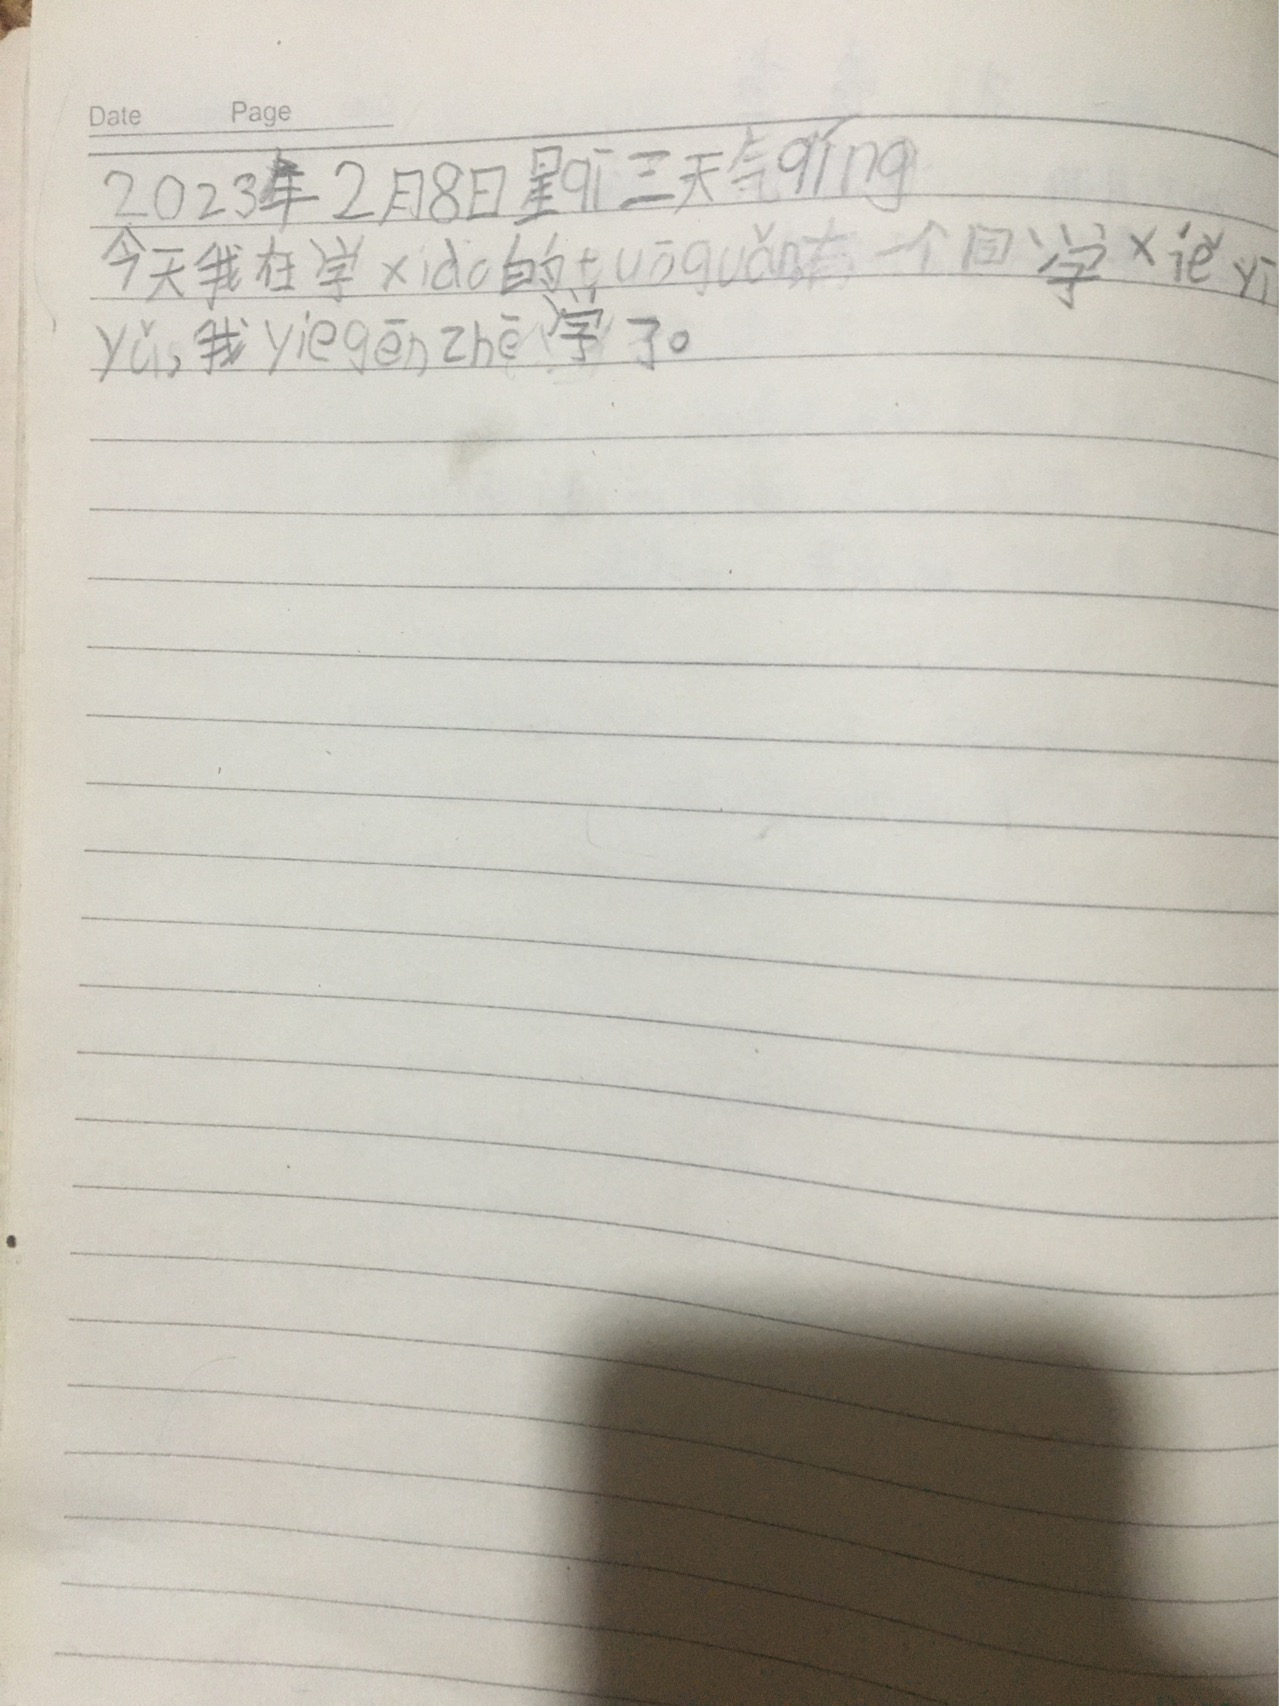 Date Page
2023年2月8日星qī三天气qíng
今天我在学xido的tuōguǎn有一个同学xiě yī
yǔ,我yiegēnzhē学了。